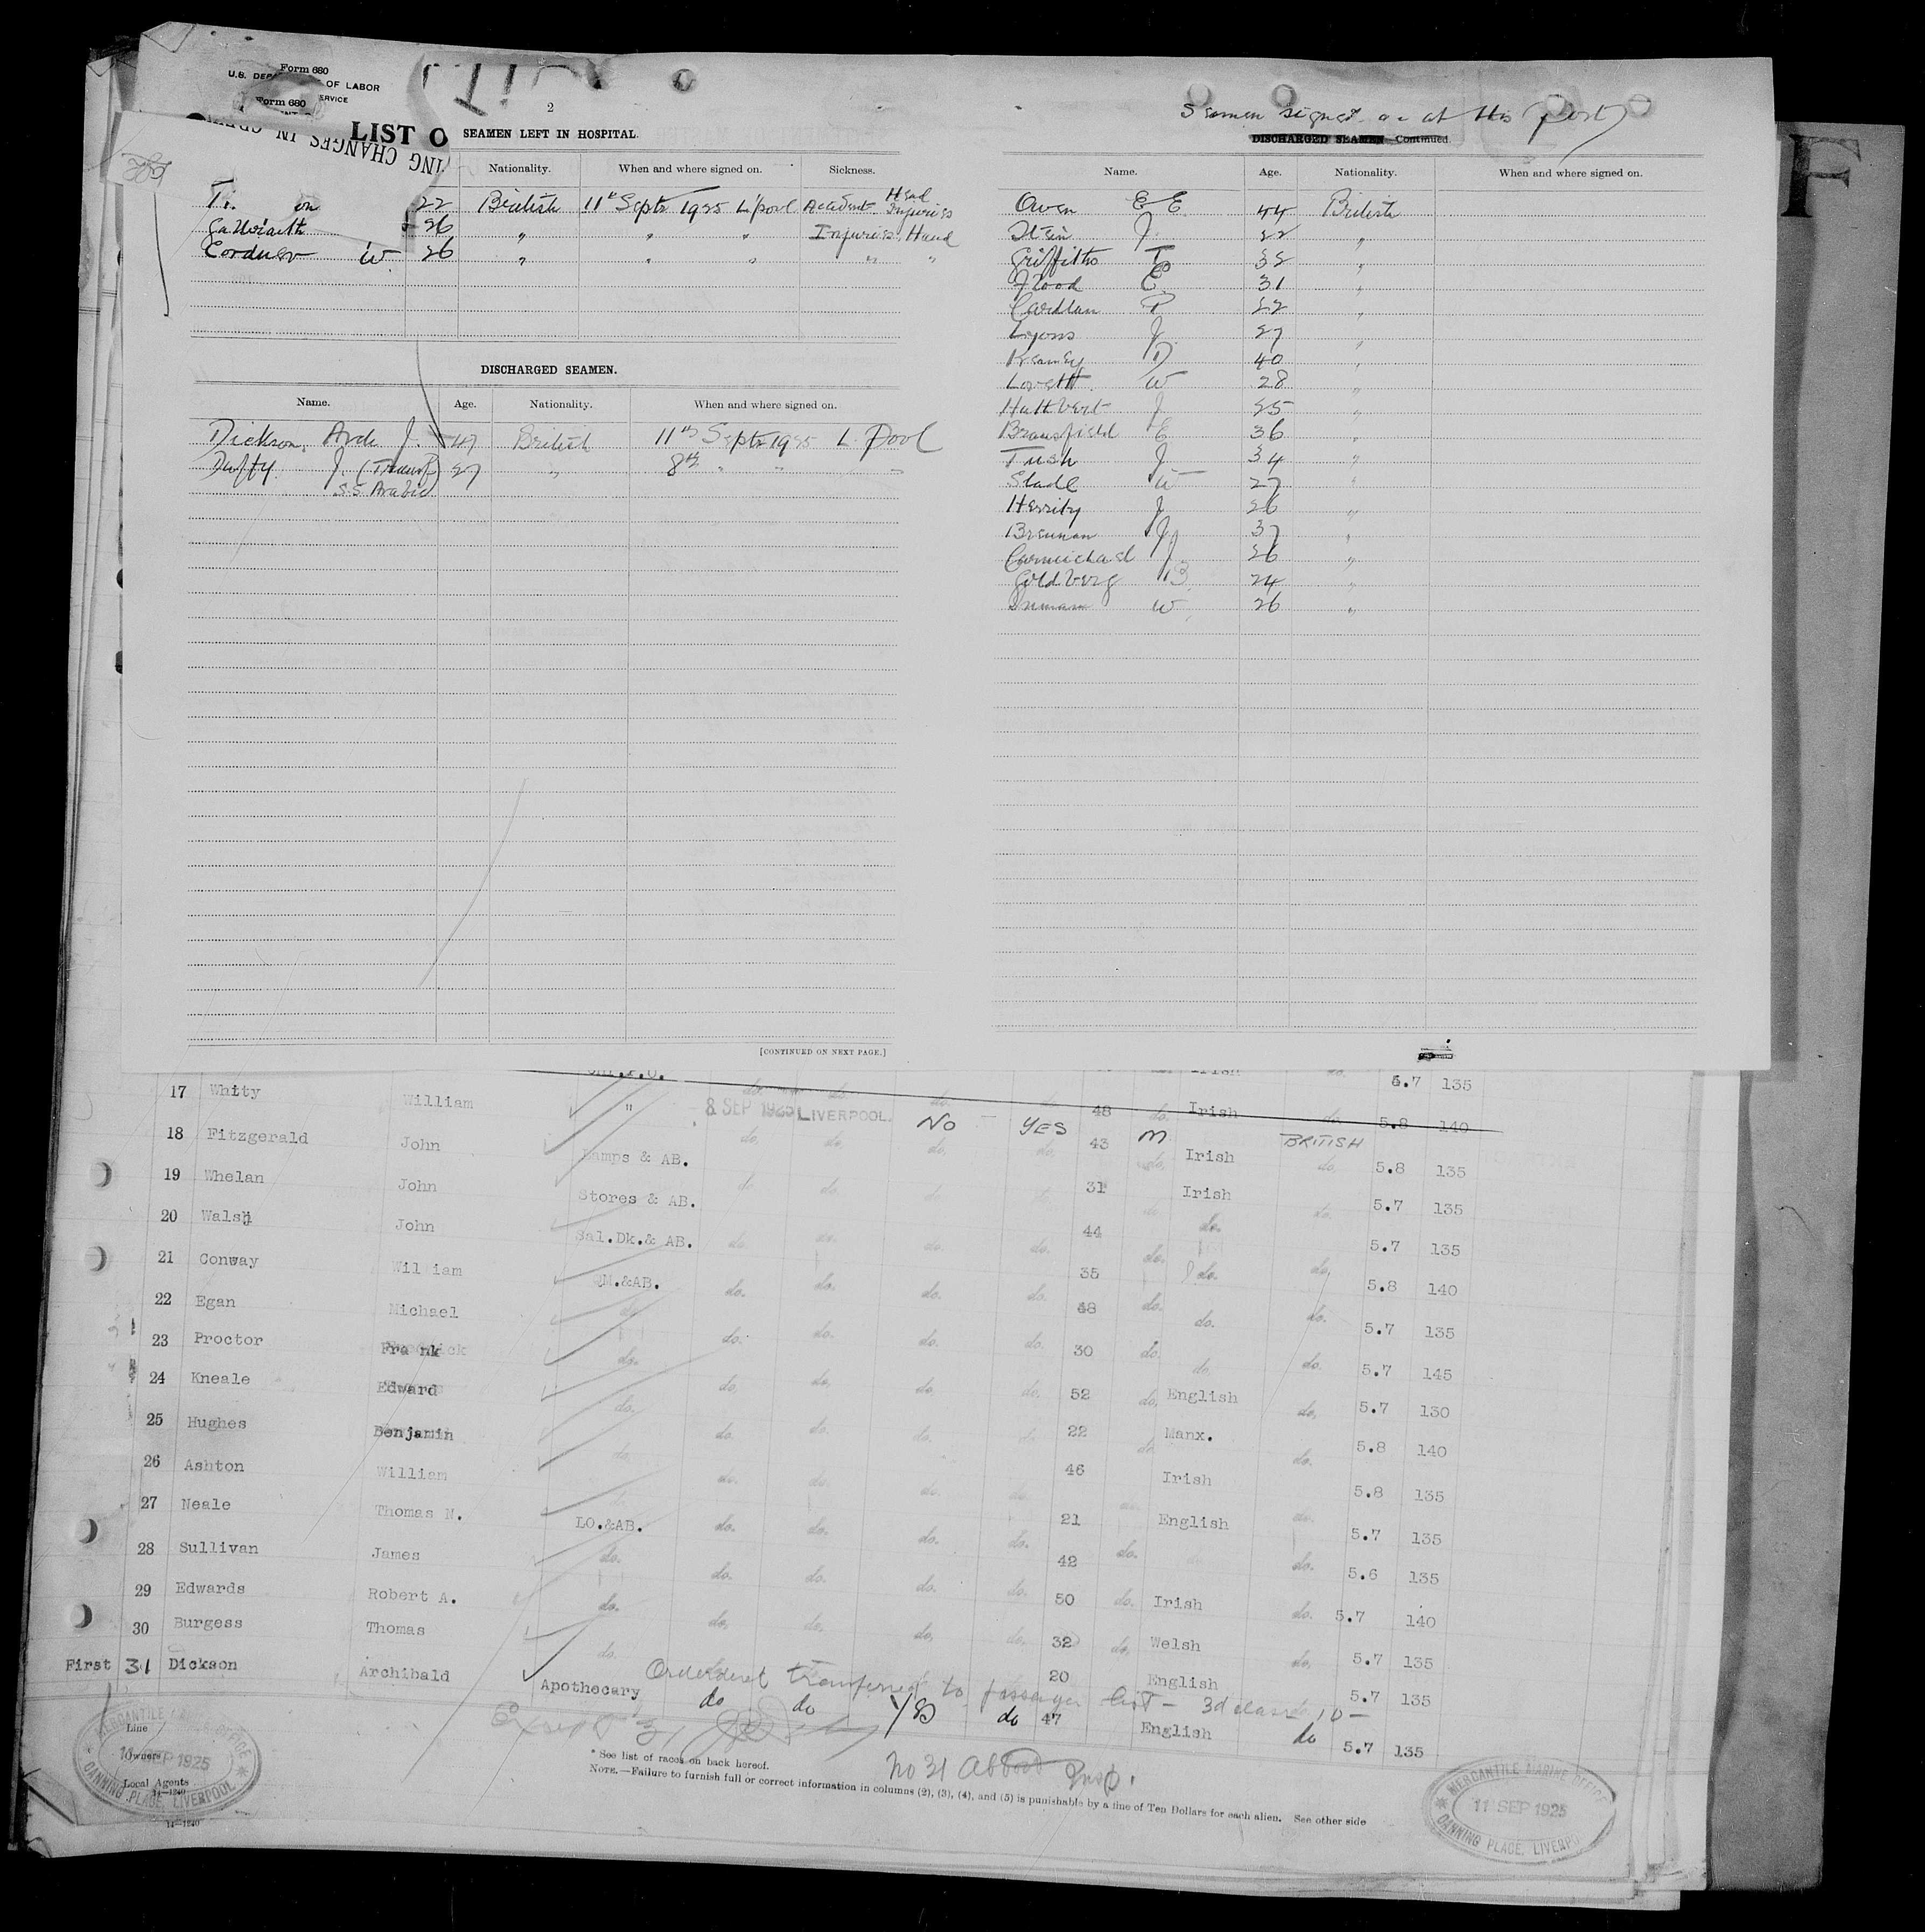 Form 680
U.S. DEPA OF LABOR
SERVICE
Form 680
LIST O
ING CHANGES IN
2
SEAMEN LEFT IN HOSPITAL.
Nationality. When and where signed on. Sickness.
22 British 11th Septr 1925 L'pool Accident Head Injuries
Galbraith 26 " " " Injuries Hand
Corduer W. 26 " " " " "
DISCHARGED SEAMEN.
Name. Age. Nationality. When and where signed on.
Dickson, Arch J. 47 British 11th Septr 1925 L. Pool
Duffy J. (Transf) 27 " 8th " " "
S.S. Arabic
[CONTINUED ON NEXT PAGE.]
Seamen signed on at this (port)
DISCHARGED SEAMEN—Continued.
Name. Age. Nationality. When and where signed on.
Owen E E. 44 British
J. 22 "
Griffiths T. 32 "
Flood E. 31 "
P 22 "
Lyons J. 27 "
Kearney D 40 "
Lovett W 28 "
J. 25 "
Bransfield E 36 "
Tush J 34 "
Slade W 27 "
Herrity J 26 "
Brennan J 37 "
Carmichael J 26 "
Goldberg B. 24 "
Inman W. 26 "
Irish 5.7 135
17 Whity William " 8 SEP 1925 LIVERPOOL. do. do. 48 do. Irish do. 5.8 140
18 Fitzgerald John Lamps & AB. do. do. NO YES 43 M Irish BRITISH 5.8 135
19 Whelan John Stores & AB. do. do. 31 Irish do. 5.7 135
20 Walsh John Sal.Dk.& AB. do. do. do. do. 44 do. do. 5.7 135
21 Conway William QM.&AB. do. do. do. do. 35 do. do. do. 5.8 140
22 Egan Michael do. do. do. do. do. 48 do. do. do. 5.7 135
23 Proctor Frank do. do. do. do. do. 30 do. do. do. 5.7 145
24 Kneale Edward do. do. do. do. do. 52 do. English do. 5.7 130
25 Hughes Benjamin do. do. do. do. do. 22 do. Manx. do. 5.8 140
26 Ashton William do. do. do. do. 46 Irish do. 5.8 135
27 Neale Thomas N. LO.&AB. do. do. do. do. 21 do. English do. 5.7 135
28 Sullivan James do. do. do. do. do. 42 do. do. 5.6 135
29 Edwards Robert A. do. do. do. do. do. 50 do. Irish do. 5.7 140
30 Burgess Thomas do. do. do. do. do. 32 do. Welsh do. 5.7 135
20 English 5.7 135
First 31 Dickson Archibald Apothecary do do Yes do 47 English do 5.7 135
transferred to passenger list — 3d class
Except 31
No 31 Abbott Insp.
Line
Owners
Local Agents
14—1240
14—1240
* See list of races on back hereof.
NOTE.—Failure to furnish full or correct information in columns (2), (3), (4), and (5) is punishable by a fine of Ten Dollars for each alien. See other side
MERCANTILE MARINE OFFICE
11 SEP 1925
CANNING PLACE, LIVERPOOL
MERCANTILE MARINE OFFICE
11 SEP 1925
CANNING PLACE, LIVERPO
F